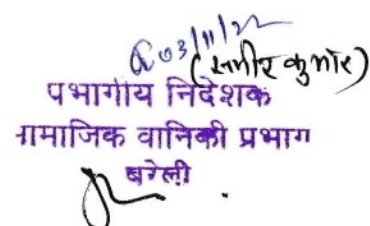 03/11/22
(समीर कुमार)
प्रभागीय निदेशक
सामाजिक वानिकी प्रभाग
बरेली